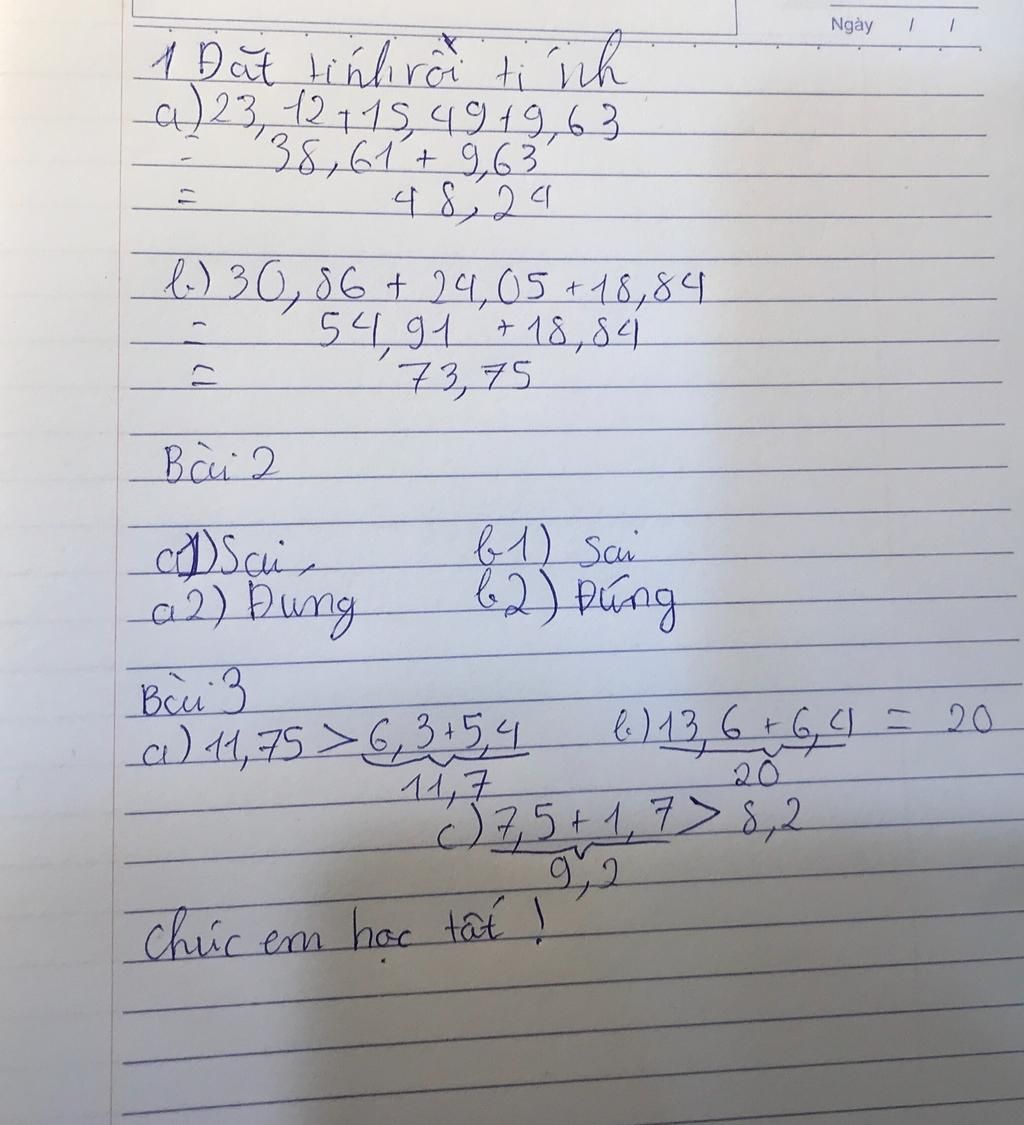 Ngày / /
1 Đặt tính rồi tính
a) 23,12 + 15,49 + 9,63
= 38,61 + 9,63
= 48,24
b) 30,86 + 24,05 + 18,84
= 54,91 + 18,84
= 73,75
Bài 2
a1) Sai, b1) Sai
a2) Đung b2) Đúng
Bài 3
a) 11,75 > 6,3 + 5,4 b) 13,6 + 6,4 = 20
11,7 20
c) 7,5 + 1,7 > 8,2
9,2
Chúc em học tốt !